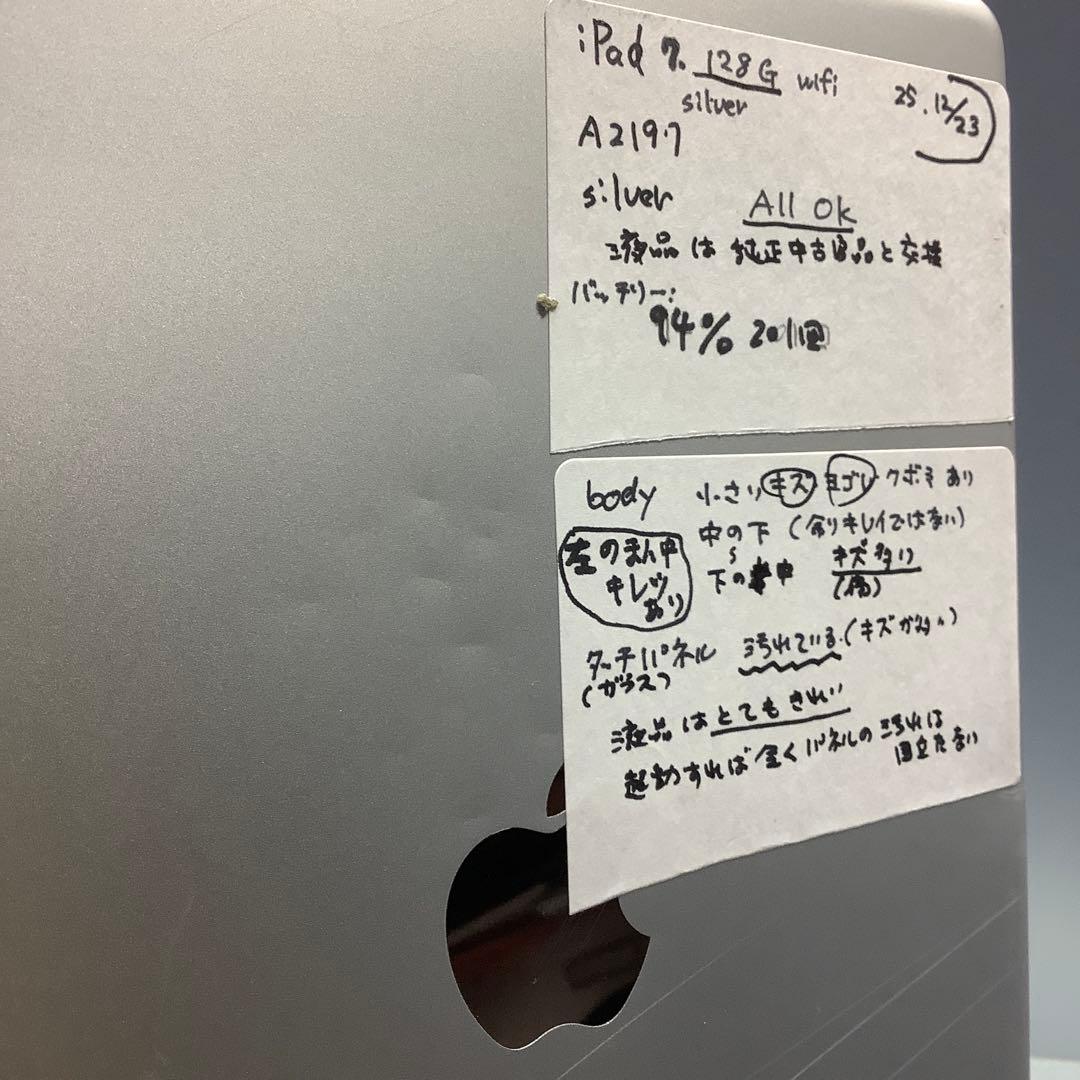 iPad 7. 128G wifi
25.12/23
silver
A2197
silver
All Ok
液晶は純正中古良品と交換
バッテリー:
94% 201回
body 小さいキズ ヨゴレ クボミ あり
中の下 (余りキレイではない)
〜
下の中 キズ多い
(傷)
左のまん中
キレツ
あり
タッチパネル 汚れている。(キズが多い)
(ガラス)
液晶はとてもきれい
起動すれば全くパネルの汚れは
目立たない